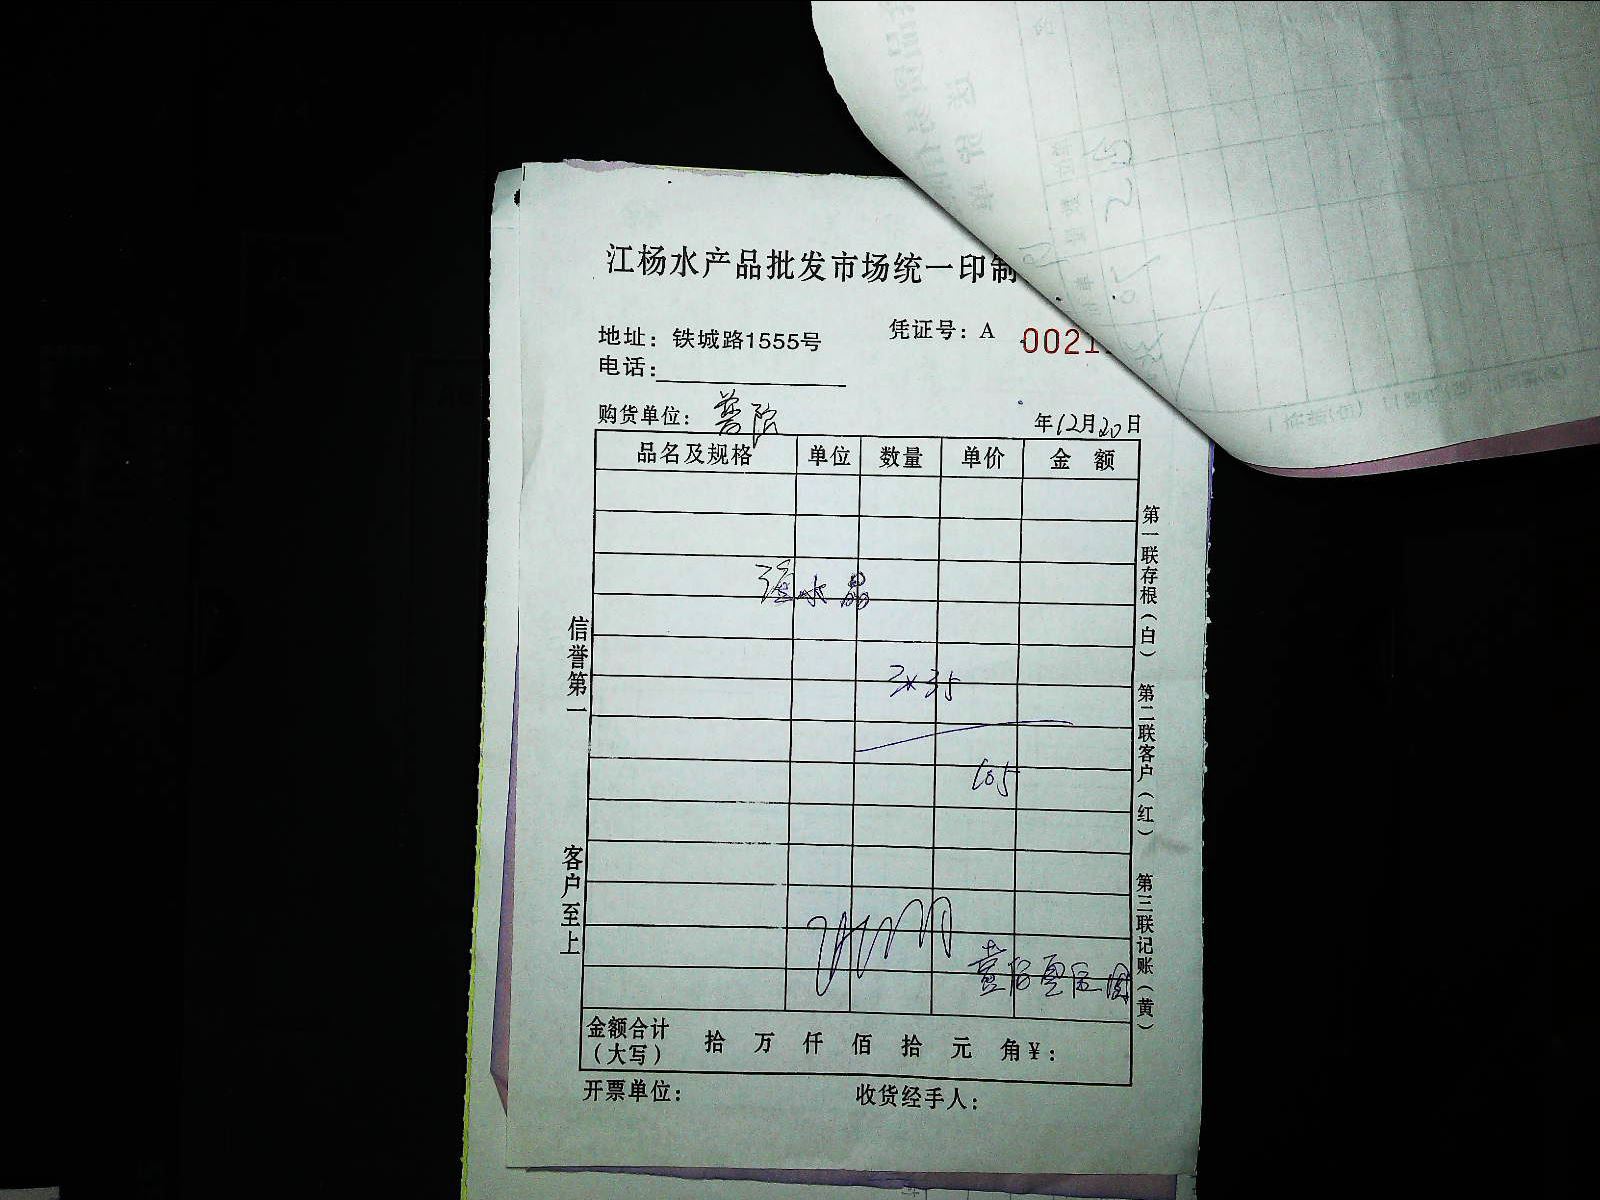 江杨水产品批发市场统一印制
地址：铁城路1555号
凭证号：A 0021
电话：
购货单位：普陀
年12月20日
品名及规格 单位 数量 单价 金额
水晶
3×35
105
壹佰零伍圆
金额合计（大写） 拾 万 仟 佰 拾 元 角￥：
开票单位： 收货经手人：
信誉第一
客户至上
第一联存根（白）
第二联客户（红）
第三联记账（黄）